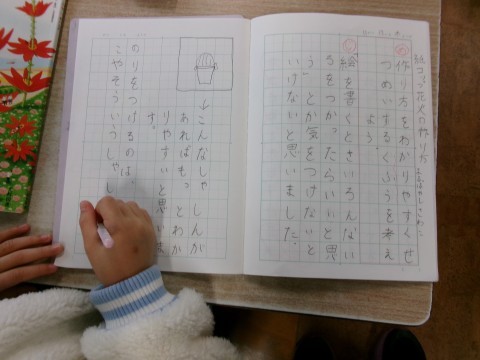 紙コップ花火の作り方
め
作り方をわかりやすくせ
つめいするくふうを考え
よう
じ
絵を書くときいろんない
ろをつかったらいいと思
う。とか気をつけないと
いけないと思いました。
↓こんなしゃしんが
あればもっとわか
りやすいと思いま
す。
のりをつけるのは、
こやそういうしゃし